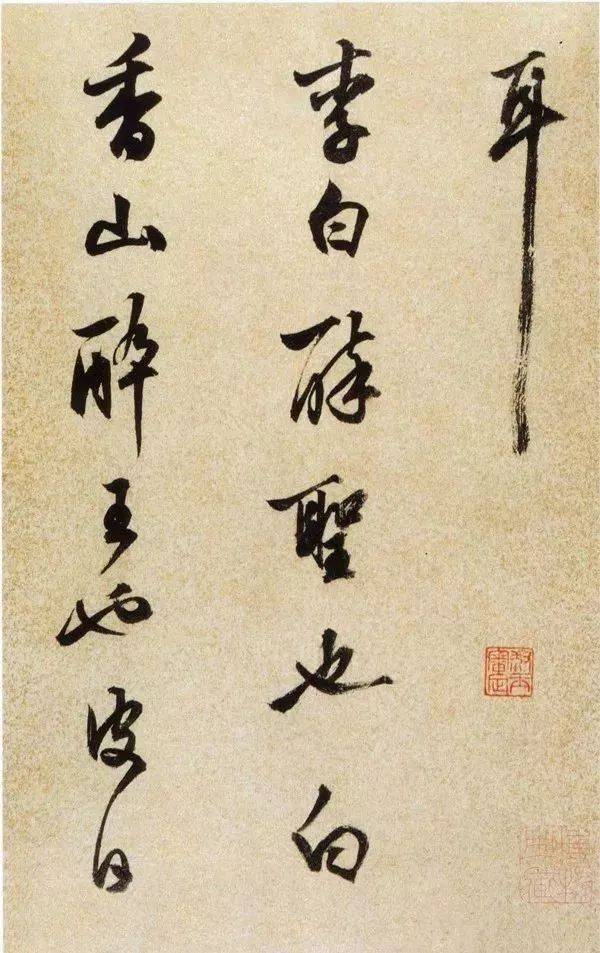 耳
李白醉聖也白
香山醉王也皮日